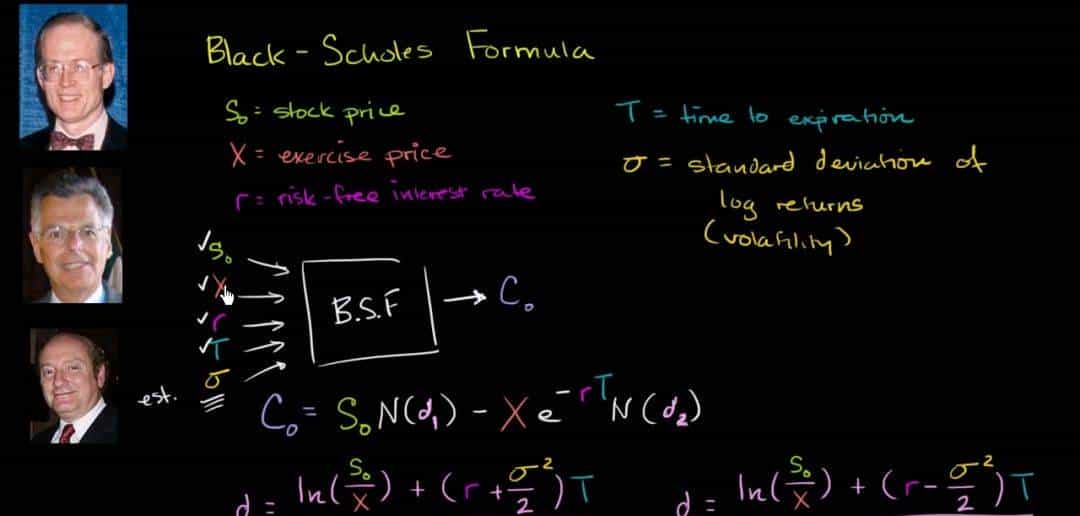 Black-Scholes Formula
S₀ = stock price
X = exercise price
r = risk-free interest rate
T = time to expiration
σ = standard deviation of
log returns
(volatility)
✓S₀
✓X
✓r
✓T
est. σ
B.S.F
C₀
C₀ = S₀N(d₁) - Xe^(-rT)N(d₂)
d = ln(S₀/X) + (r + σ²/2)T
d = ln(S₀/X) + (r - σ²/2)T